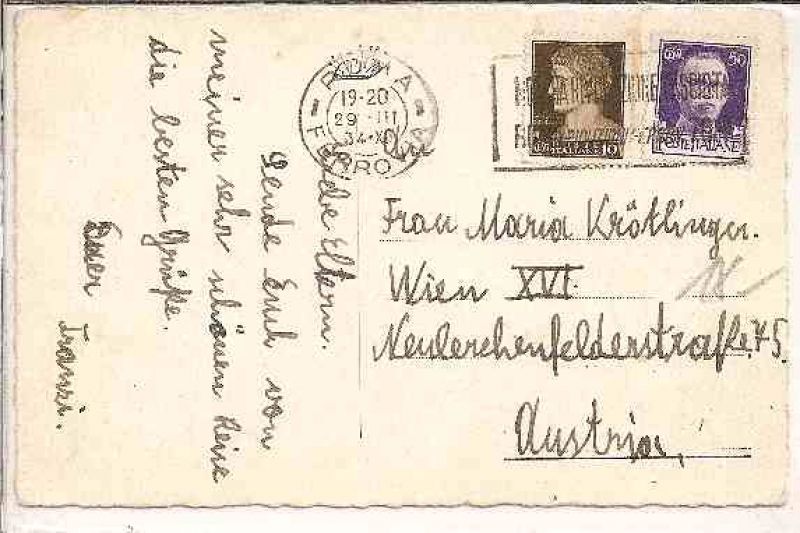 Liebe Eltern.
Sende Euch von
meiner sehr schönen Reise
die besten Grüße.
Euer
Franzi.
ROMA
19-20
29 III
34-XII
FERRO
10
50
POSTE ITALIANE
An
Frau Maria Krötlinger.
Wien XVI.
Neulerchenfelderstraße 75.
Austria,